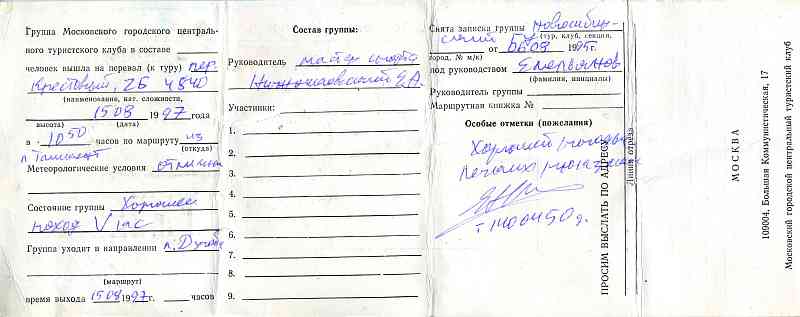 Группа Московского городского централь-
ного туристского клуба в составе
человек вышла на перевал (к туру) пер.
2Б 4840
(наименование, кат. сложности,
1508 1997 года
высота) (дата)
в 10 50 часов по маршруту из
(откуда)
Метеорологические условия отличные
Состояние группы Хорошее
поход V к/с
Группа уходит в направлении
(маршрут)
время выхода 1508 1997г. часов
Состав группы:
Руководитель мастер спорта
Е.А.
Участники:
1.
2.
3.
4.
5.
6.
7.
8.
9.
Снята записка группы Новосибир-
(тур. клуб, секция,
от 1995г.
город, № м/к)
под руководством
(фамилия, инициалы)
Руководитель группы
Маршрутная книжка №
Особые отметки (пожелания)
Хорошей погоды
ПРОСИМ ВЫСЛАТЬ ПО АДРЕСУ
Линия отреза
МОСКВА
109004, Большая Коммунистическая, 17
Московский городской центральный туристский клуб